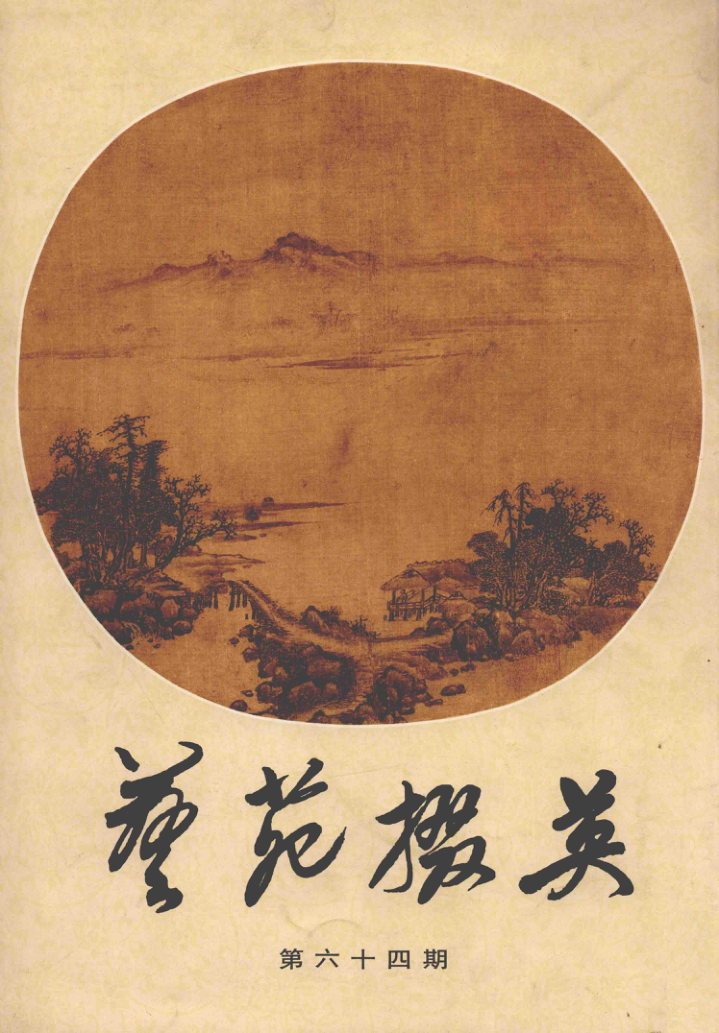 藝苑掇英
第六十四期